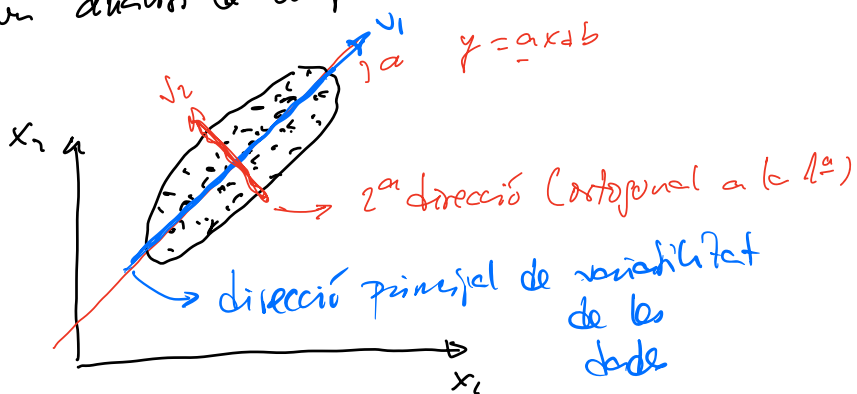 en anàlisi de
v1
a
y = ax+b
v2
x2
2ª direcció (ortogonal a la 1ª)
direcció principal de variabilitat
de les
dades
x1